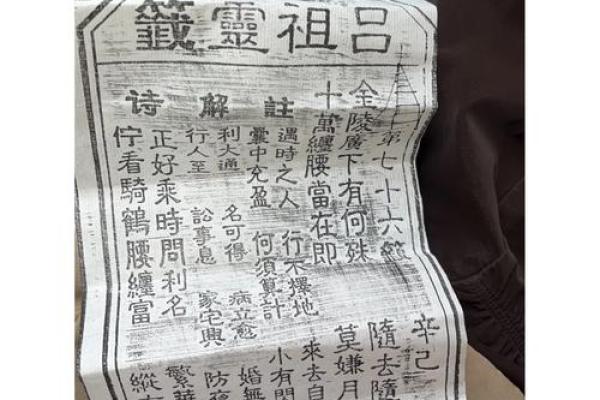 吕祖靈籤
第七十六籤
金陵廣下有何殊
十萬纏腰當在即
註解诗
遇時之人 行不擇地
囊中充盈 何須算計
利大通 名可得 病立愈
行人至 訟事息 家宅興
正好乘時問利名
佇看騎鶴腰纏富
辛己
隨去隨
莫嫌月
來去自
小有閃
婚無
防
繁華
縱